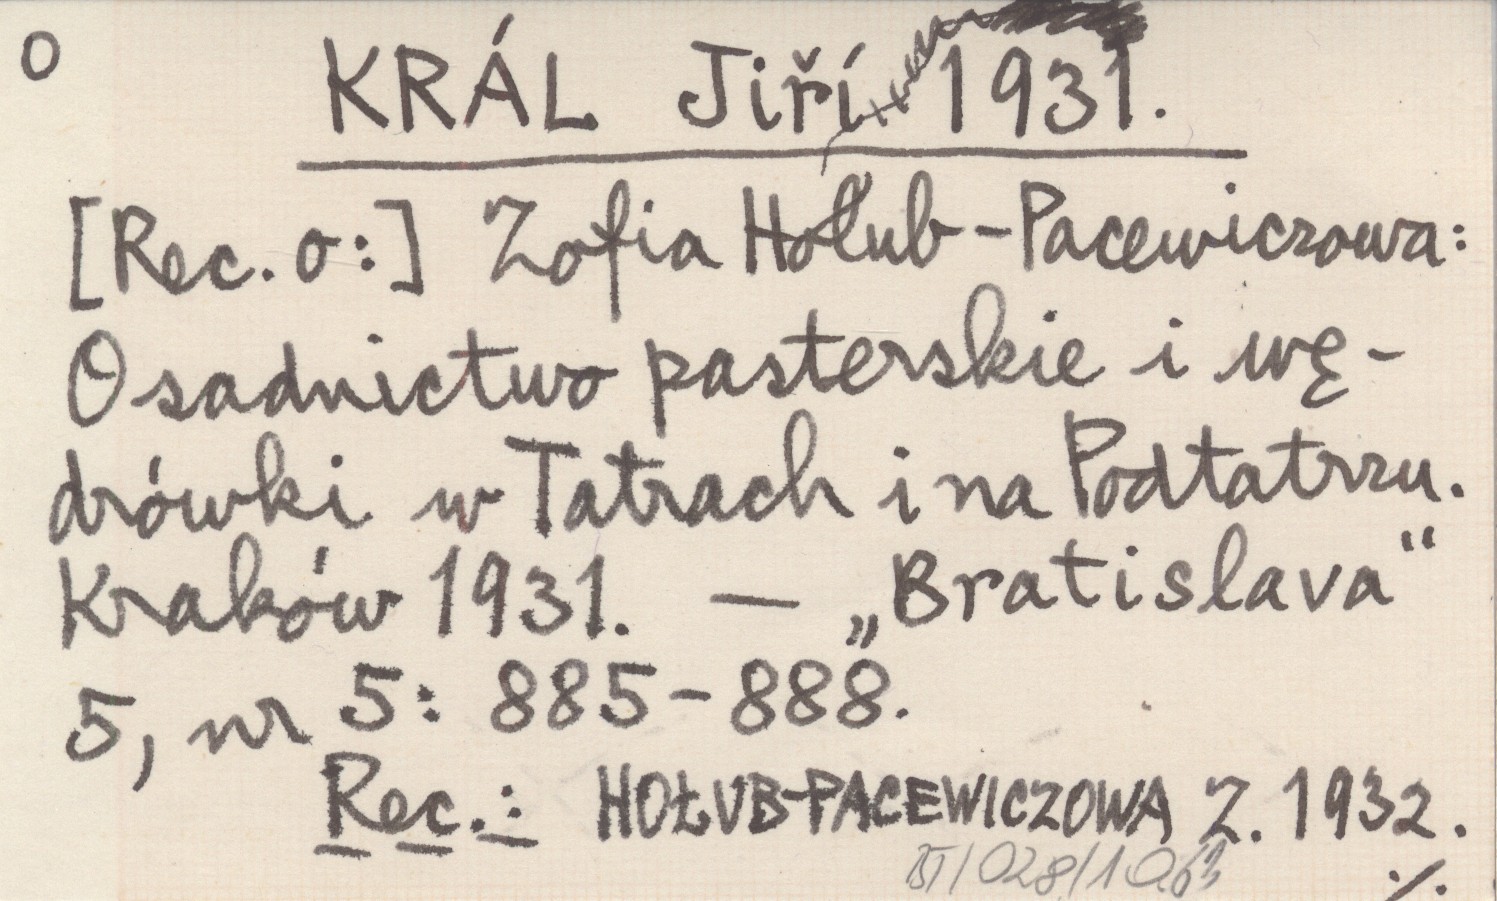 O
KRÁL Jiří 1931.
[Rec. o:] Zofia Hołub-Pacewiczowa:
Osadnictwo pasterskie i wę-
drówki w Tatrach i na Podtatrzu.
Kraków 1931. — „Bratislava“
5, nr 5: 885-888.
Rec.: HOŁUB-PACEWICZOWA Z. 1932.
/028/1063
./.